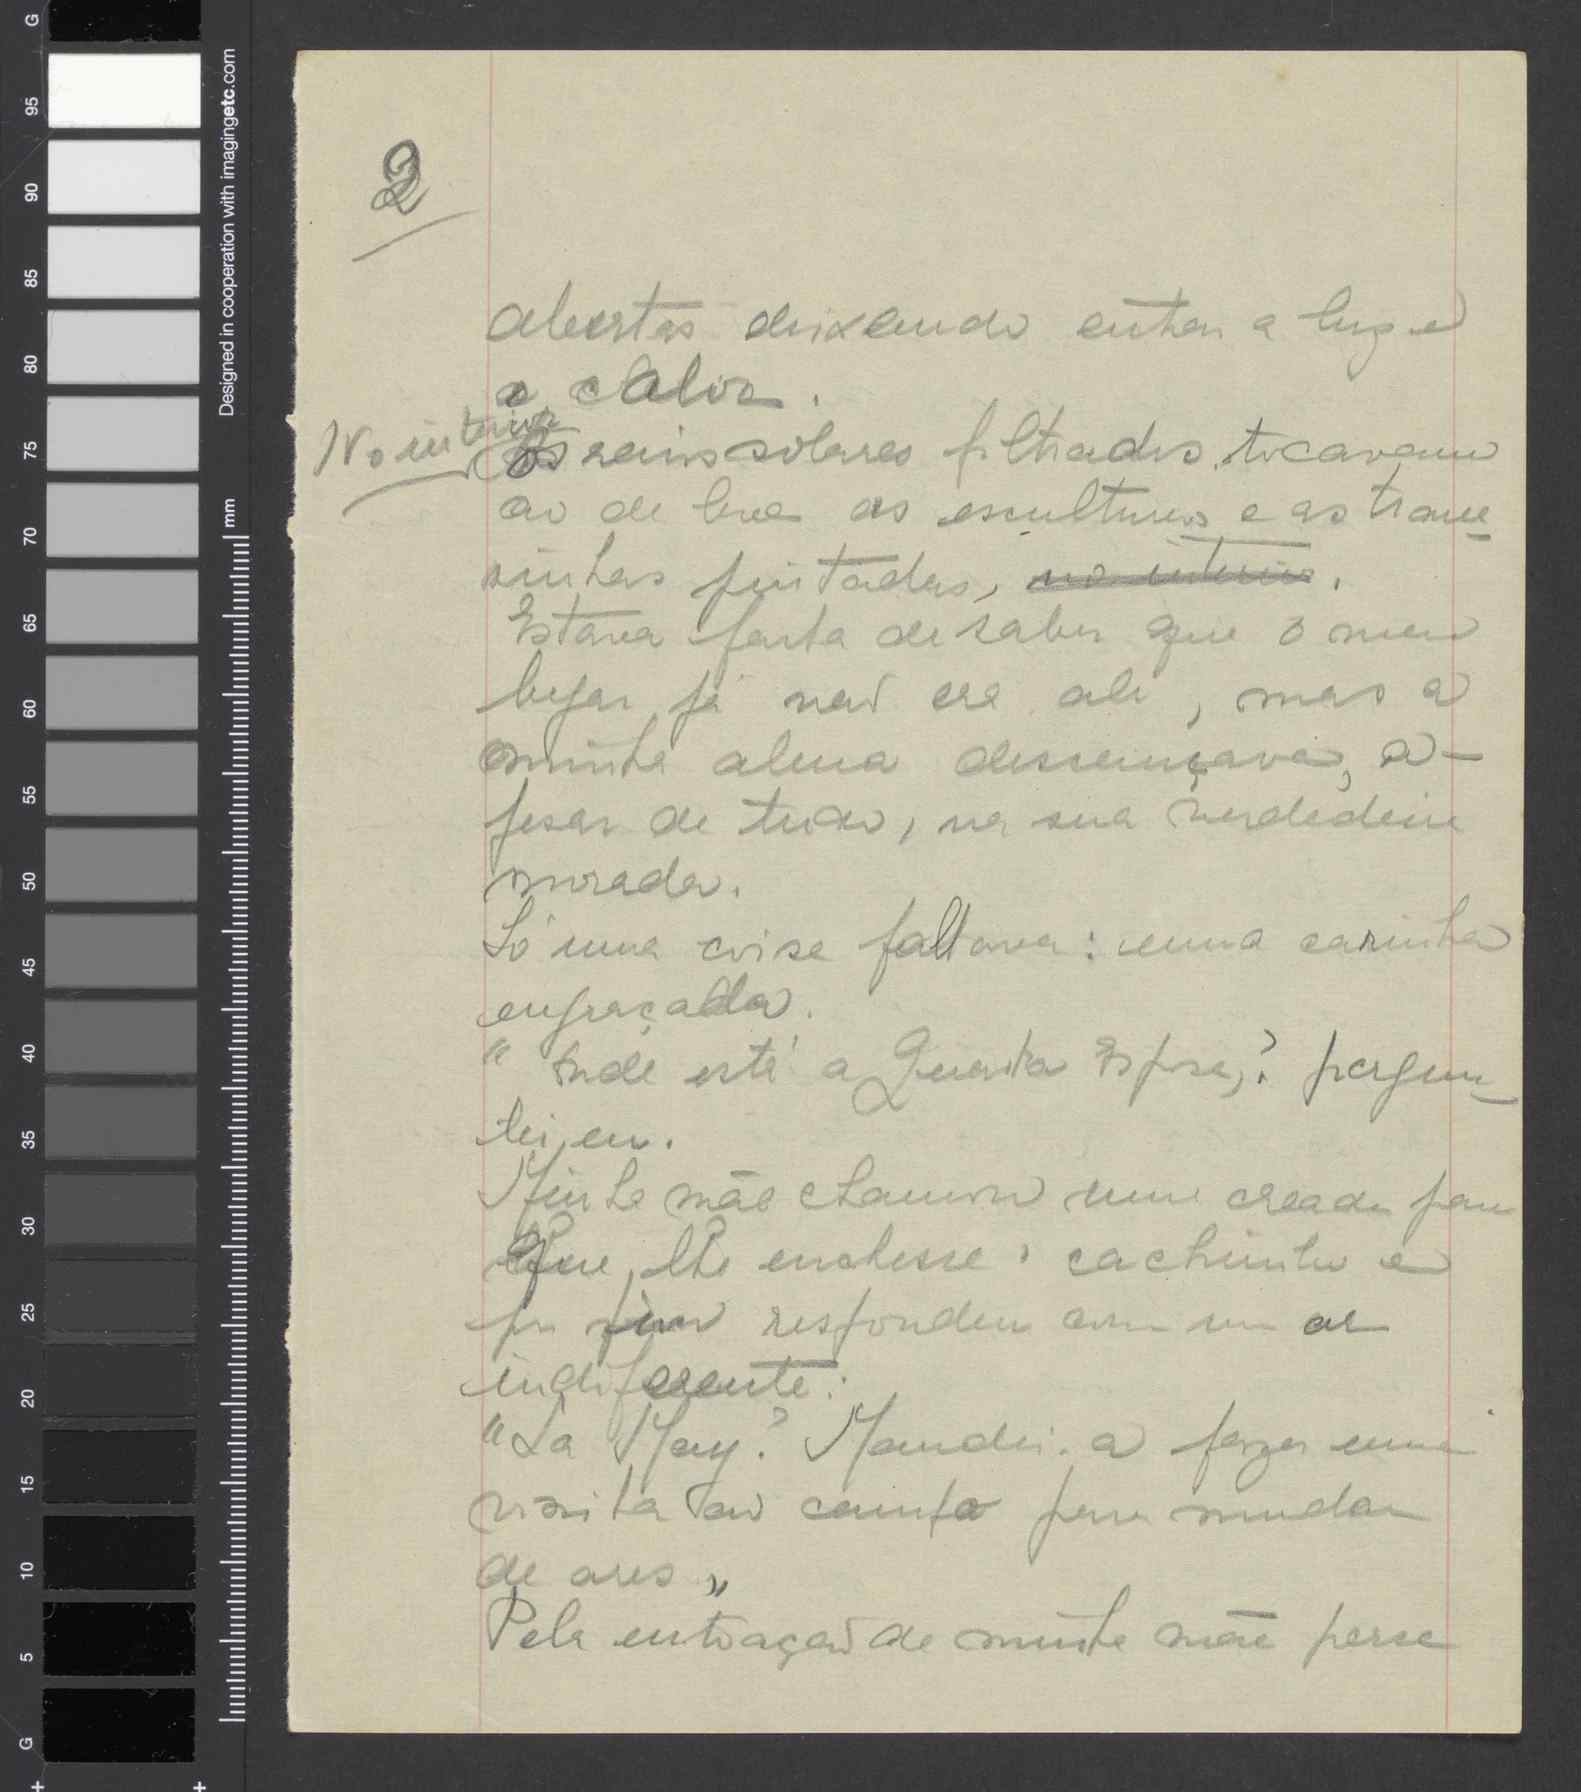 2
abertas deixando entrar a luz e
o calor.
No interior os raios solares filtrados tocavam
ao de leve as esculturas e as trave
sinhas pintadas, no interior.
Estava farta de saber que o meu
lugar já não era ali, mas a
minha alma descançava, a-
pesar de tudo, na sua verdadeira
morada.
Só uma coisa faltava: uma carinha
engraçada.
" Onde está a Quarta Esposa,? pergun_
tei eu.
Minha mãe chamou uma creada para
que lhe enchesse o cachimbo e
por fim respondeu com um ar
indiferente:
"La May? Mandei-a fazer uma
visita ao campo para mudar
de ares „
Pela entoação de minha mãe perce
G
95
90
85
80
75
70
65
60
55
50
45
40
35
30
25
20
15
10
5
G
Designed in cooperation with imagingetc.com
mm